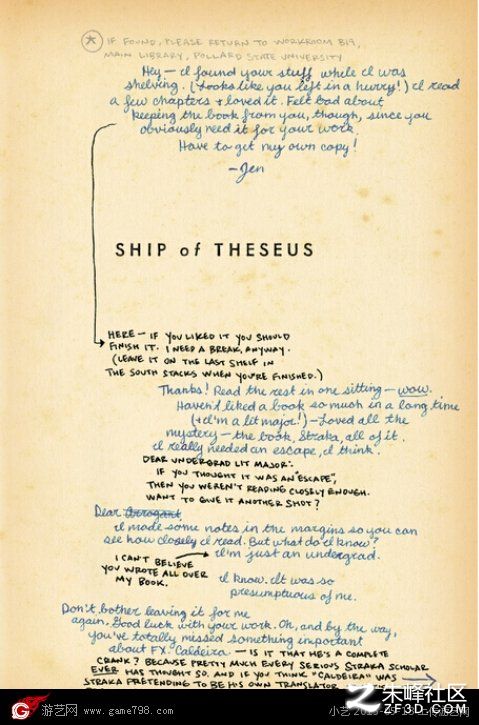 * IF FOUND, PLEASE RETURN TO WORKROOM B19,
MAIN LIBRARY, POLLARD STATE UNIVERSITY
Hey — I found your stuff while I was
shelving. (Looks like you left in a hurry!) I read
a few chapters + loved it. Felt bad about
keeping the book from you, though, since you
obviously need it for your work.
Have to get my own copy!
—Jen
SHIP of THESEUS
HERE — IF YOU LIKED IT YOU SHOULD
FINISH IT. I NEED A BREAK, ANYWAY.
(LEAVE IT ON THE LAST SHELF IN
THE SOUTH STACKS WHEN YOU'RE FINISHED.)
Thanks! Read the rest in one sitting — wow.
Haven't liked a book so much in a long time
(+ I'm a lit major!) — Loved all the
mystery — the book, Straka, all of it.
I really needed an escape, I think.
DEAR UNDERGRAD LIT MAJOR:
IF YOU THOUGHT IT WAS AN "ESCAPE",
THEN YOU WEREN'T READING CLOSELY ENOUGH.
WANT TO GIVE IT ANOTHER SHOT?
Dear Arrogant
I made some notes in the margins so you can
see how closely I read. But what do I know?
I'm just an undergrad.
I CAN'T BELIEVE
YOU WROTE ALL OVER
MY BOOK.
I know. It was so
presumptuous of me.
Don't bother leaving it for me
again. Good luck with your work. Oh, and by the way,
you've totally missed something important
about FX. Caldeira. — IS IT THAT HE'S A COMPLETE
CRANK? BECAUSE PRETTY MUCH EVERY SERIOUS STRAKA SCHOLAR
EVER HAS THOUGHT SO. AND IF YOU THINK "CALDEIRA" WAS
STRAKA PRETENDING TO BE HIS OWN TRANSLATOR
朱峰社区
ZF3D.COM
游艺网
www.game798.com